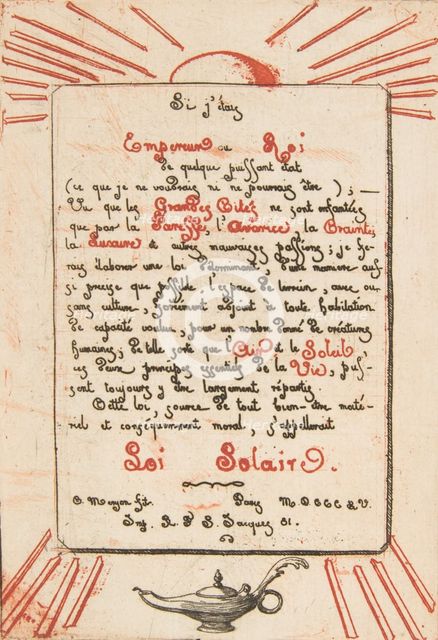 Si j'étais
Empereur ou Roi
de quelque puissant état
(ce que je ne voudrais ni ne pourrais être) ; —
Vu que les Grandes Cités ne sont enfantées
que par la Paresse, l'Avarice, la Crainte,
la Luxure et autres mauvaises passions ; je fe-
rais élaborer une loi déterminant, d'une manière aus-
si précise que possible l'espace de terrain, avec ou
sans culture, forcément adjoint à toute habitation
de capacité voulue, pour un nombre donné de créatures
humaines ; de telle sorte que l'Air et le Soleil,
ces deux principes essentiels de la Vie, pus-
sent toujours y être largement répartis.
Cette loi, source de tout bien-être maté-
riel et conséquemment moral, s'appellerait
Loi Solaire.
C. Meryon fit. Paris M D CCC L V.
Imp. R. S. Jacques 81.